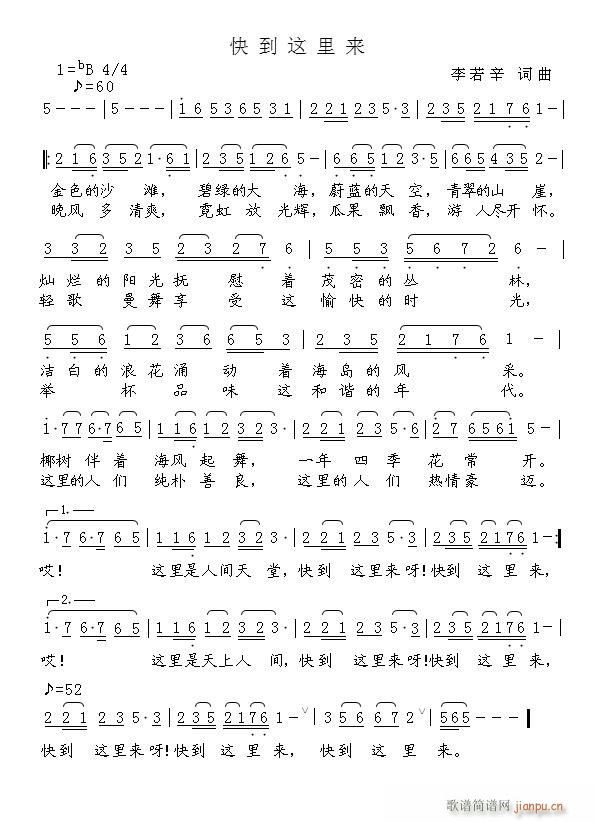 快到这里来
1=ᵇB 4/4
♪=60
李若辛 词曲
5 - - - | 5 - - - | 1 6 5 3 6 5 3 1 | 2 2 1 2 3 5 · 3 | 2 3 5 2 1 7 6 | 1 - - - |
‖: 2 1 6 3 5 2 1 · 6 1 | 2 3 5 1 2 6 5 - | 6 6 5 1 2 3 · 5 | 6 6 5 4 3 5 2 - |
金色的沙 滩， 碧绿的大 海，蔚蓝的天 空，青翠的山 崖，
晚风 多 清爽， 霓虹 放 光辉，瓜果 飘 香，游 人尽开 怀。
3 3 2 3 5 2 3 2 7 6 | 5 5 3 5 2 3 7 6 5 6 - |
灿 烂 的 阳 光 抚 慰 着 茂 密 的 丛 林，
轻 歌 曼 舞 享 受 这 愉 快 的 时 光，
5 5 6 1 2 3 6 6 5 3 | 2 3 5 2 1 7 6 1 - |
洁 白 的 浪 花 涌 动 着 海 岛 的 风 采。
举 杯 品 味 这 和 谐 的 年 代。
1 · 7 7 6 · 7 6 5 | 1 1 6 1 2 3 2 3 · | 2 2 1 2 3 5 · 6 | 2 7 6 5 6 1 5 - |
椰树 伴 着 海风 起 舞， 一年 四 季 花 常 开。
这里的人 们 纯朴 善 良， 这里的 人 们 热情豪 迈。
1.
1 · 7 6 · 7 6 5 | 1 1 6 1 2 3 2 3 · | 1 2 3 2 3 5 · 3 | 2 3 5 2 1 7 6 1 - :‖
哎！ 这里是人间天 堂，快到 这里来呀!快到 这 里 来，
2.
1 · 7 6 · 7 6 5 | 1 1 6 1 2 3 2 3 · | 1 2 3 2 3 5 · 3 | 2 3 5 2 1 7 6 1 - |
哎！ 这里是天上人 间，快到 这里来呀!快到 这 里 来，
♪=52
2 2 1 2 3 5 · 3 | 2 3 5 2 1 7 6 1 - ∨ | 3 5 6 6 7 2 ∨ | 5 6 5 - - - ‖
快到 这里来 呀!快到 这 里 来， 快到 这 里 来。
歌谱简谱网
jianpu.cn